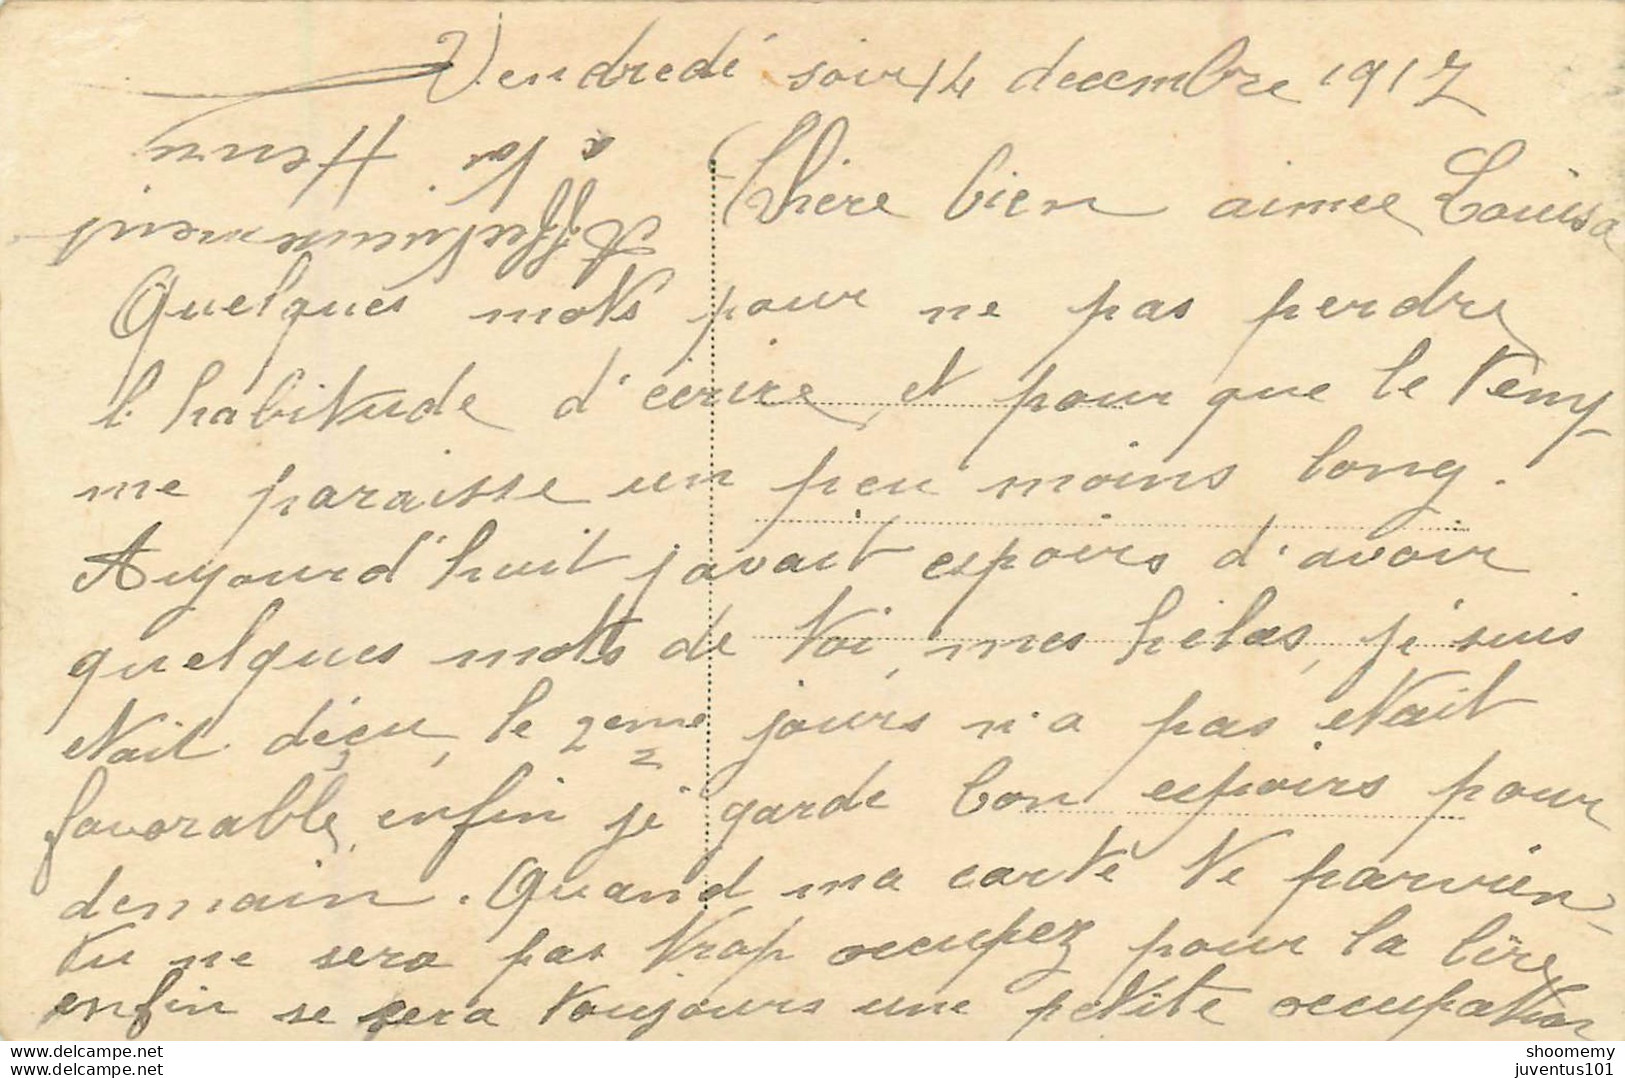 Vendredi soir 14 decembre 1917
Chère bien aimee Louisa
Quelques mots pour ne pas perdre
l'habitude d'écrire et pour que le temp
me paraisse un peu moins long.
Aujourd'huit javait espoirs d'avoir
quelques mots de toi, mes hélas, je suis
etait déçu, le 2eme jours n'a pas etait
favorable, enfin je garde bon espoirs pour
demain. Quand ma carte te parvien-
tu ne sera pas trop occupez pour la lire
enfin se sera toujours une petite occupation
Affectueusement
à toi Henri
shoomemy
juventus101